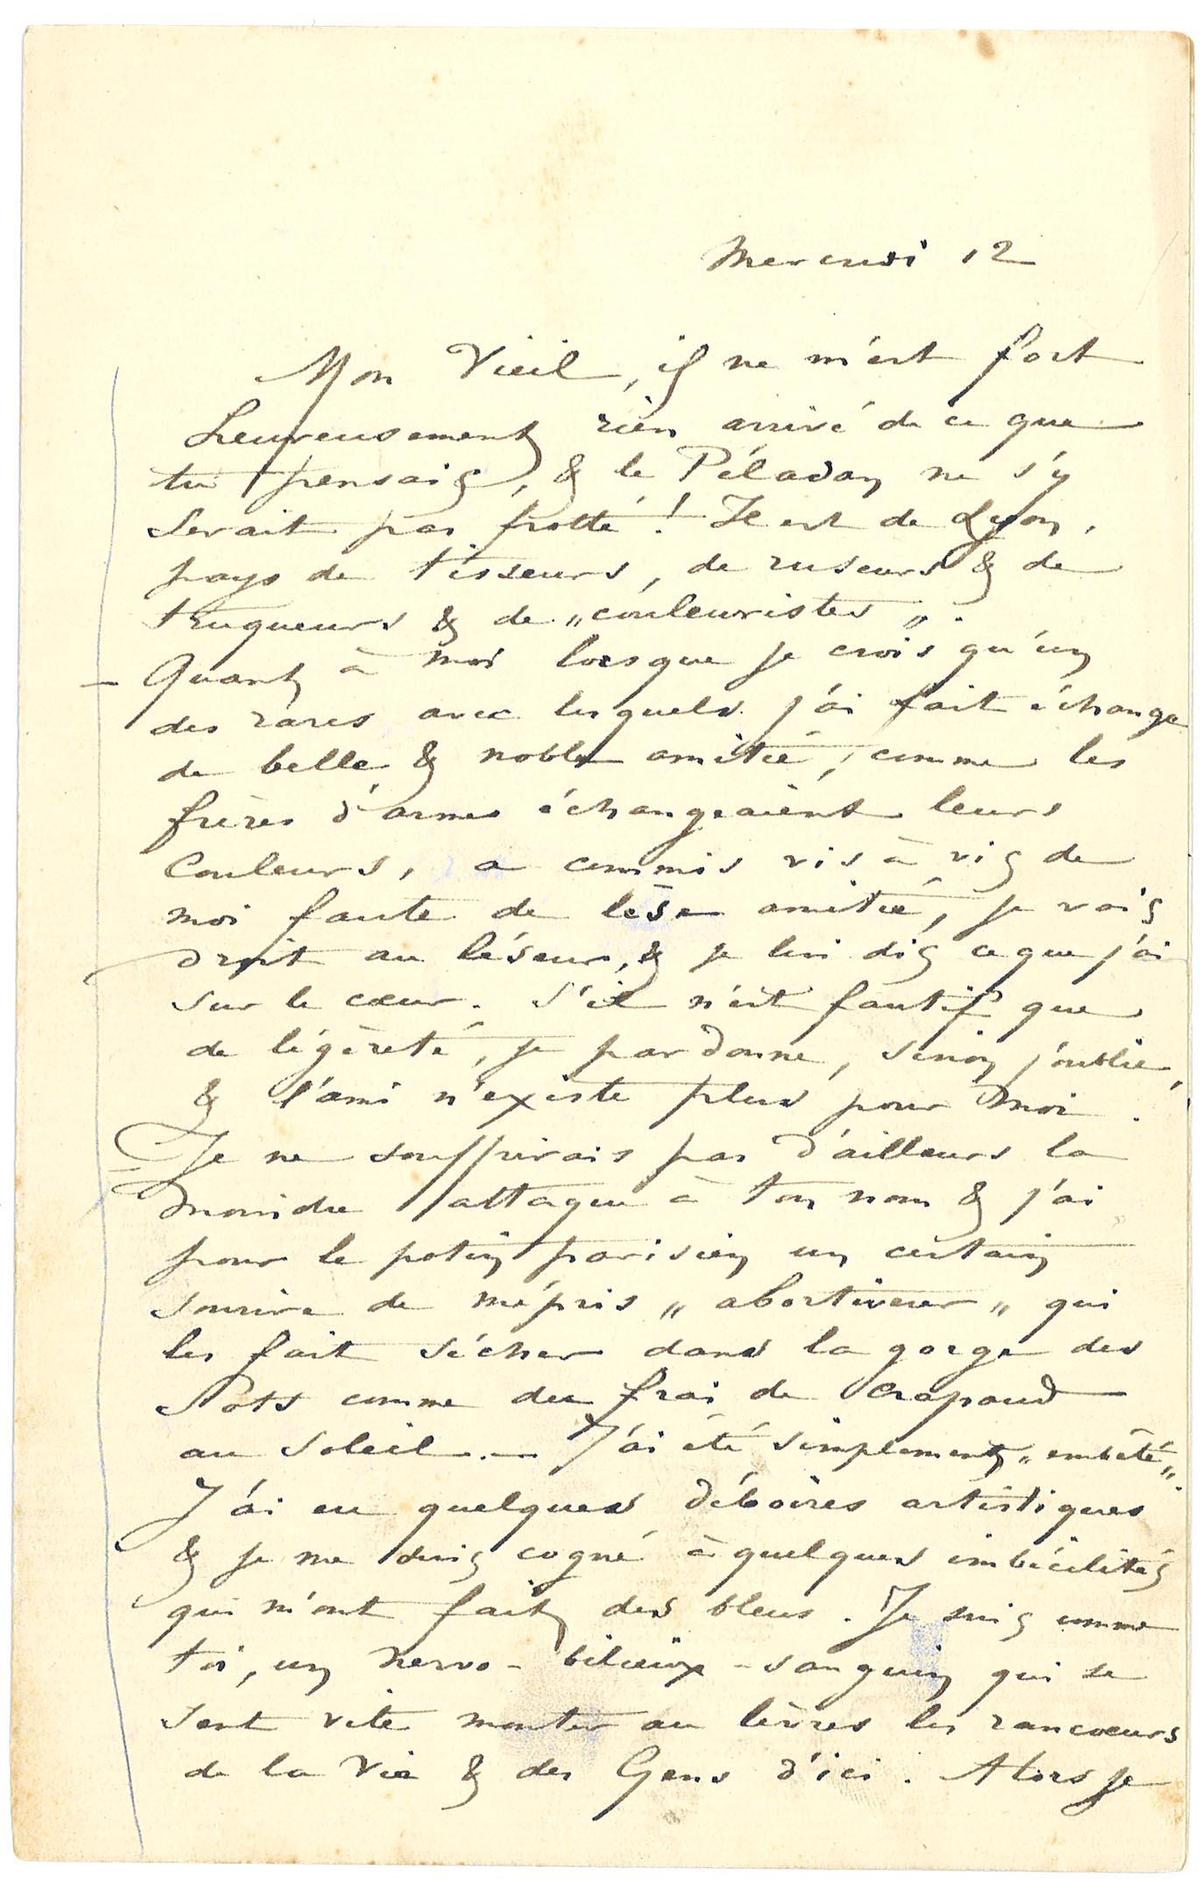 Mercredi 12
Mon Vieil, il ne m'est fort
heureusement rien arrivé de ce que
tu pensais, & le Péladan ne s'y
serait pas frotté ! Il est de Lyon,
pays de tisseurs, de ruseurs & de
truqueurs & de „couleuristes„.
Quant à moi lorsque je crois qu'un
des rares avec lesquels j'ai fait échange
de belle & noble amitié, comme les
frères d'armes échangeaient leurs
Couleurs, a commis vis à vis de
moi faute de lèse amitié, je vais
droit au léseur, & je lui dis ce que j'ai
sur le cœur. S'il n'est fautif que
de légèreté, je pardonne, sinon j'oublie,
& l'ami n'existe plus pour moi.
Je ne souffrirais pas d'ailleurs la
moindre attaque à ton nom & j'ai
pour le potin parisien un certain
sourire de mépris „ abortiveur „ qui
les fait sécher dans la gorge des
Sots comme du frai de crapaud
au soleil. — J'ai été simplement „embêté„.
J'ai eu quelques déboires artistiques
& je me suis cogné à quelques imbécilités
qui m'ont fait des bleus. Je suis comme
toi, un nervo-bilieux-sanguin qui se
sent vite monter au lèvres les rancœurs
de la Vie & des Gens d'ici. Alors je